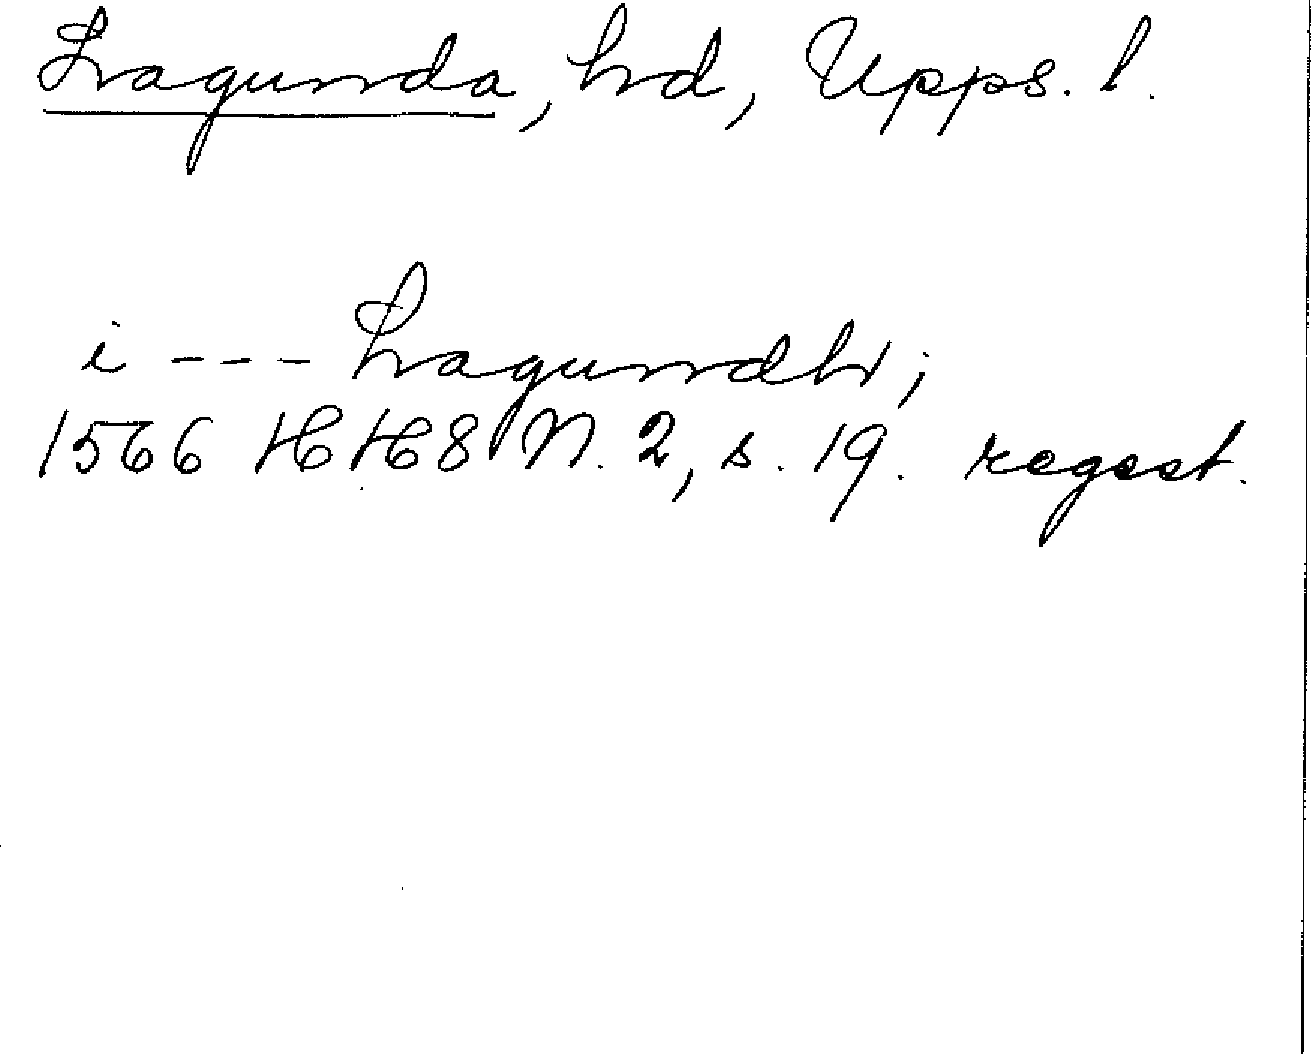 Lagunda, hd, Upps. l.
i --- Lagundh;
1566 HH 8 N. 2, s. 19. regest.